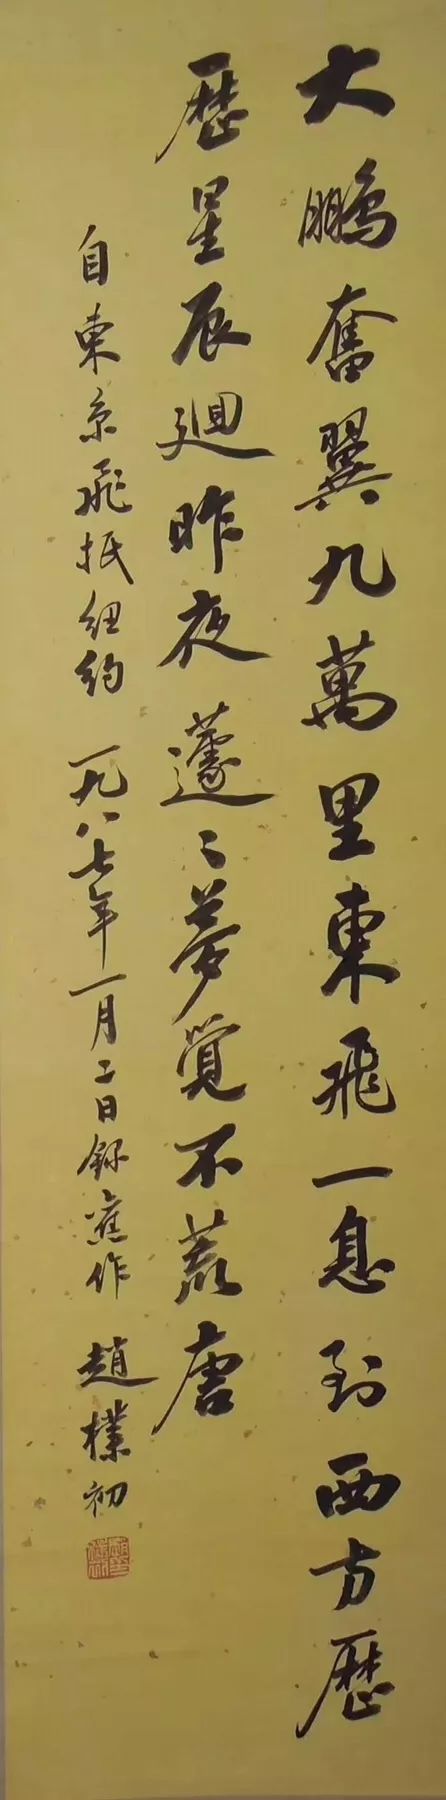 大鹏奮翼九萬里東飛一息到西方歷
歷星辰迴昨夜蘧〻夢覺不荒唐
自東京飛抵紐約 一九八七年一月二日録舊作 趙樸初